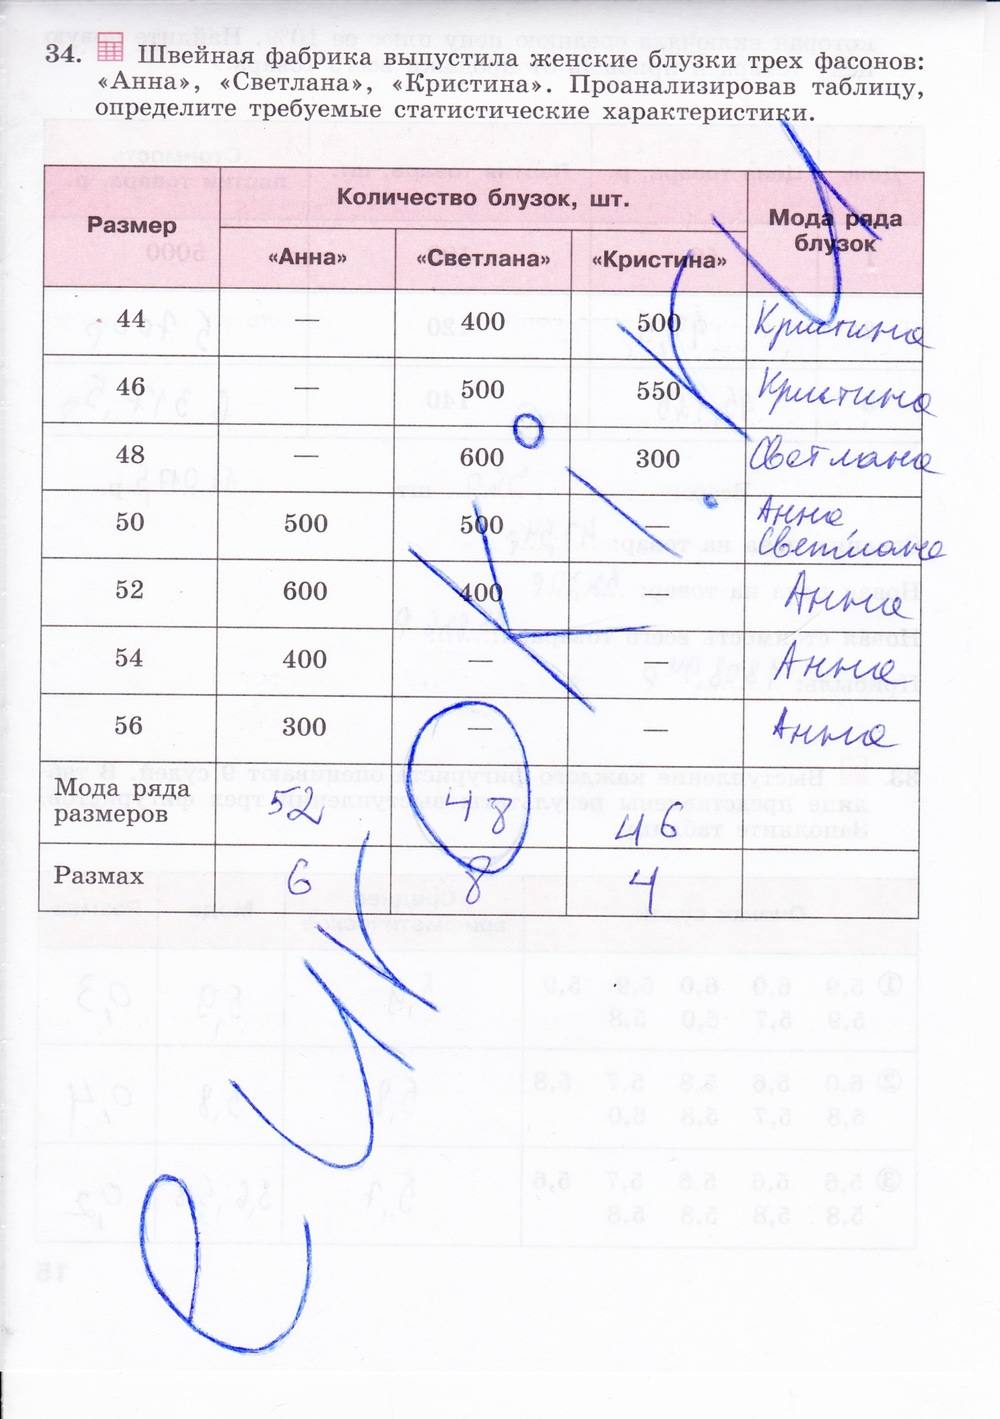 34. Швейная фабрика выпустила женские блузки трех фасонов:
«Анна», «Светлана», «Кристина». Проанализировав таблицу,
определите требуемые статистические характеристики.
Размер Количество блузок, шт. Мода ряда блузок
«Анна» «Светлана» «Кристина»
44 — 400 500 Кристина
46 — 500 550 Кристина
48 — 600 300 Светлана
50 500 500 — Анна, Светлана
52 600 400 — Анна
54 400 — — Анна
56 300 — — Анна
Мода ряда размеров 52 48 46
Размах 6 8 4